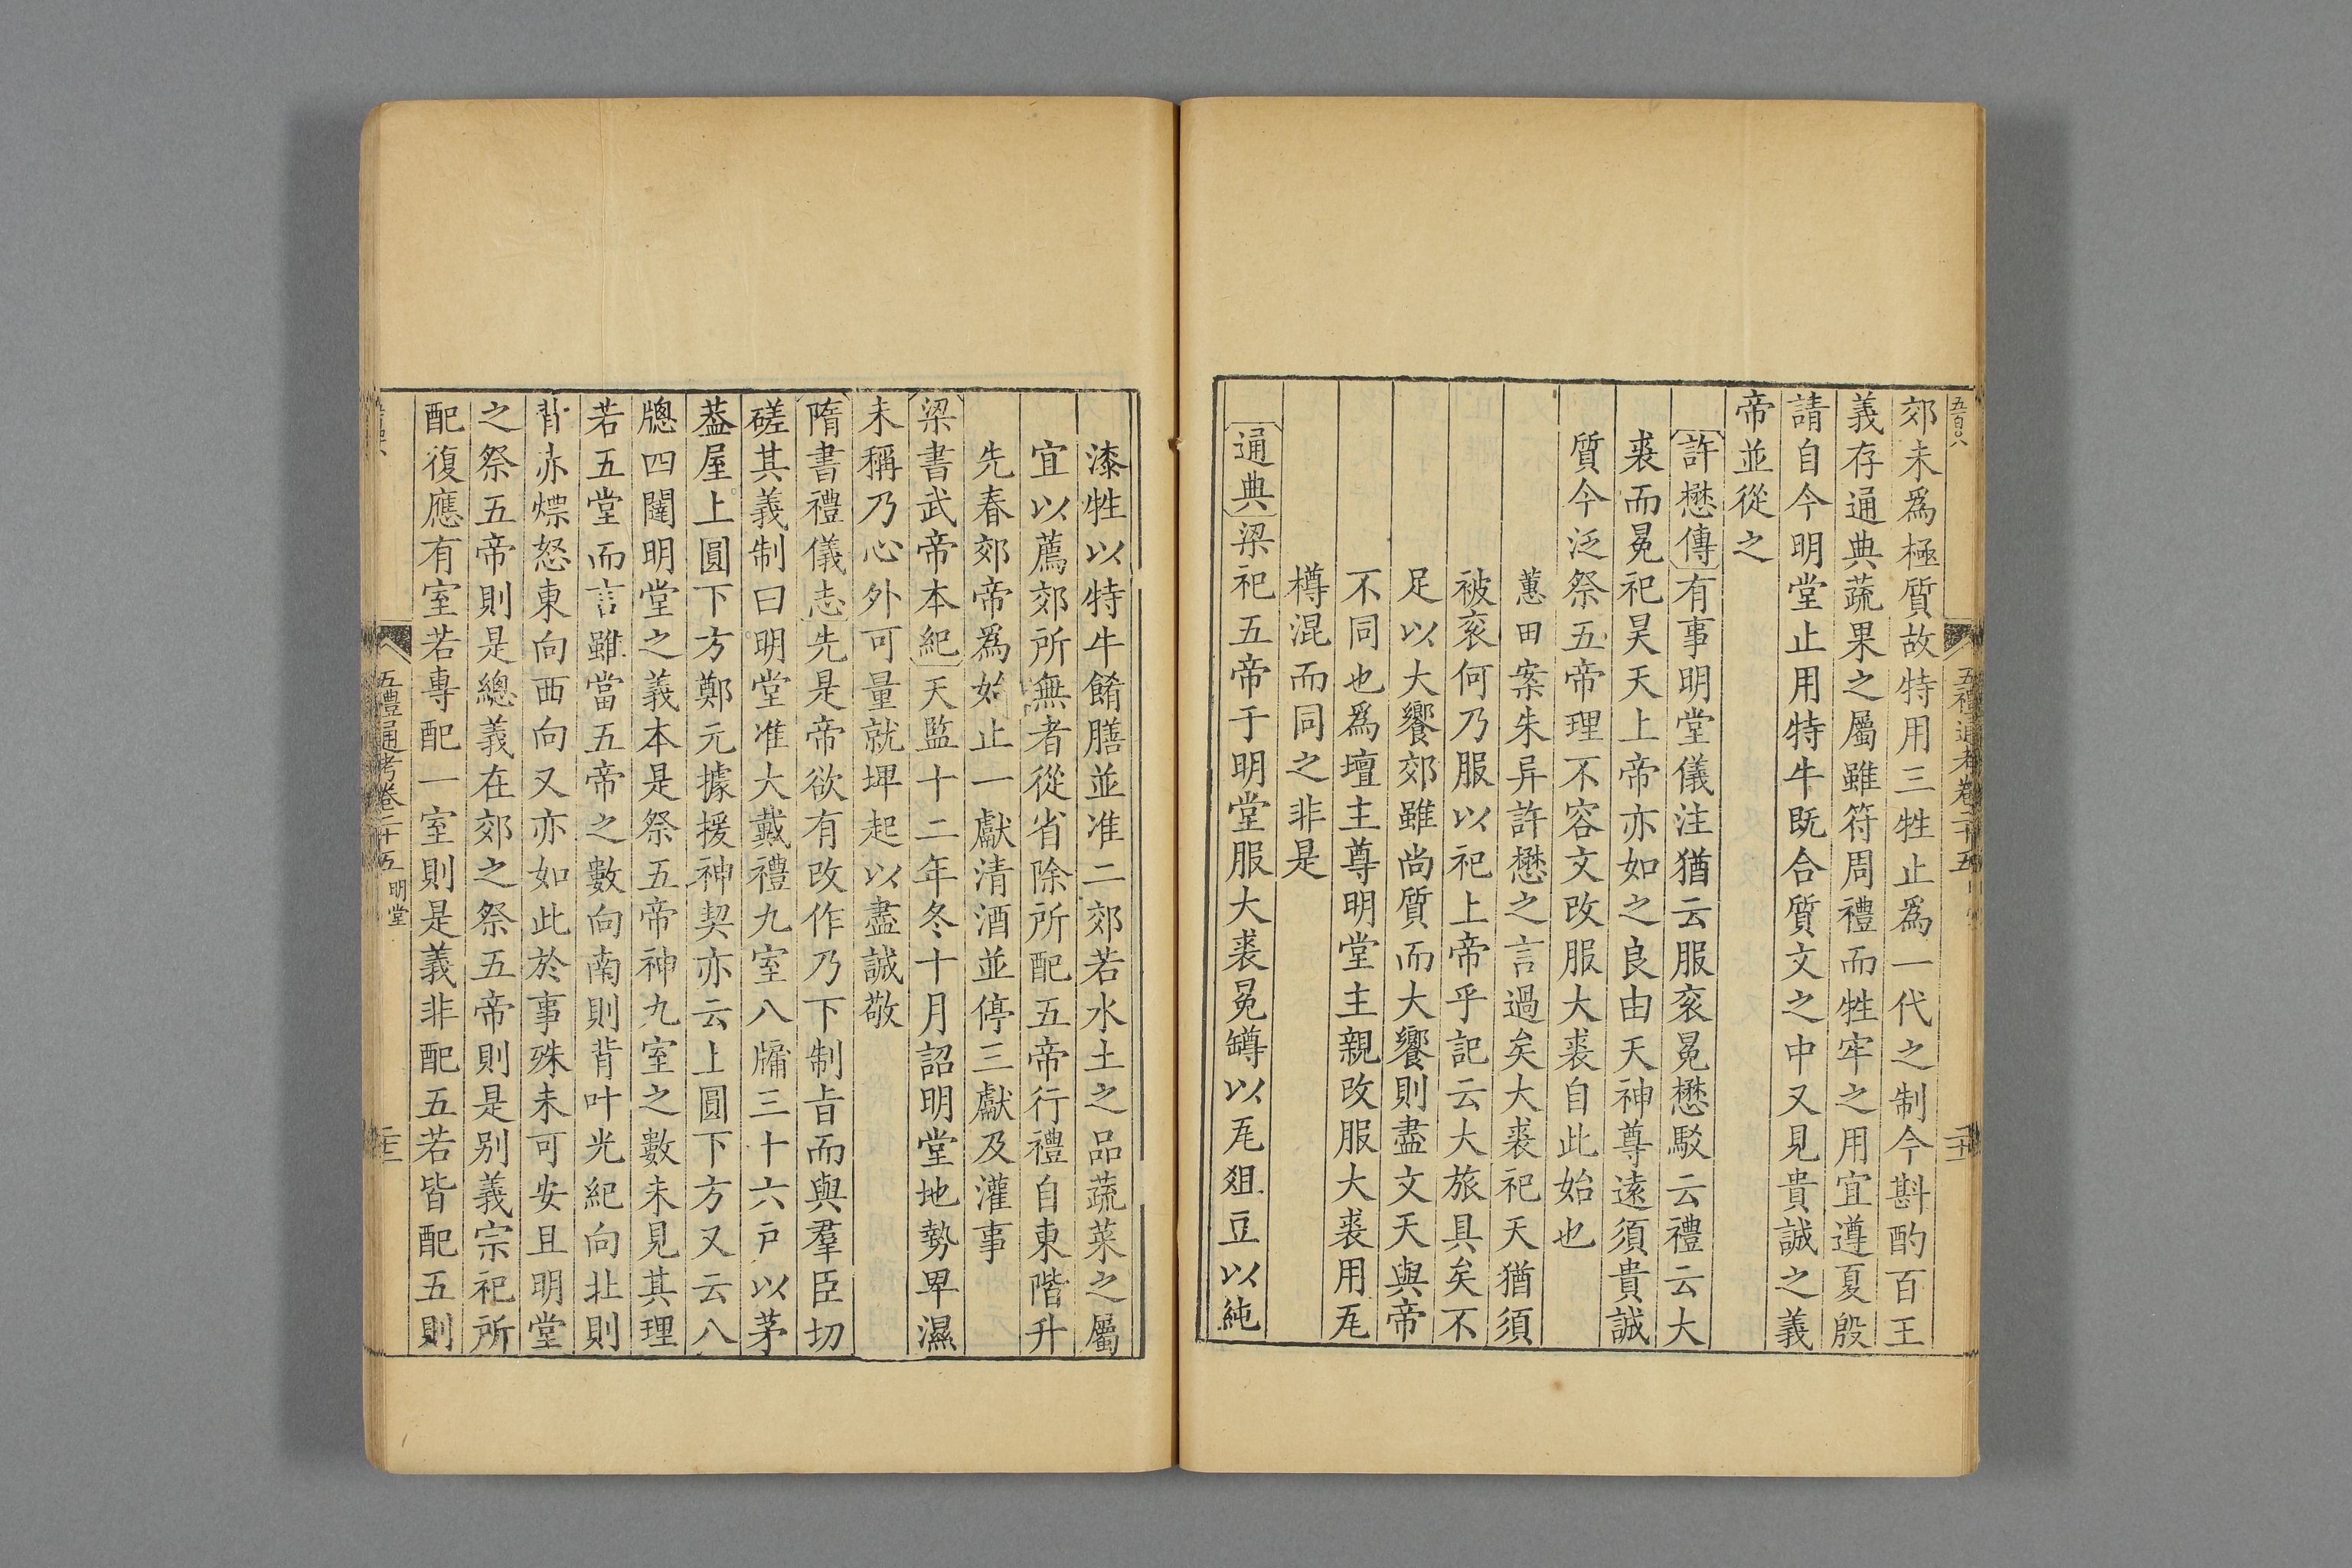 五百八
五禮通考卷二十五
郊未爲極質故特用三牲止爲一代之制今斟酌百王
義存通典蔬果之屬雖符周禮而牲牢之用宜遵夏殷
請自今明堂止用特牛既合質文之中又見貴誠之義
帝並從之
許懋傳有事明堂儀注猶云服衮冕懋駁云禮云大
裘而冕祀昊天上帝亦如之良由天神尊遠須貴誠
質今泛祭五帝理不容文改服大裘自此始也
蕙田案朱异許懋之言過矣大裘祀天猶須
被衮何乃服以祀上帝乎記云大旅具矣不
足以大饗郊雖尚質而大饗則盡文天與帝
不同也爲壇主尊明堂主親改服大裘用𤬪
樽混而同之非是
通典梁祀五帝于明堂服大裘冕罇以𤬪俎豆以純
漆牲以特牛餚膳並准二郊若水土之品蔬菜之屬
宜以薦郊所無者從省除所配五帝行禮自東階升
先春郊帝爲始止一獻清酒並停三獻及灌事
梁書武帝本紀天監十二年冬十月詔明堂地勢卑濕
未稱乃心外可量就埤起以盡誠敬
隋書禮儀志先是帝欲有改作乃下制旨而與羣臣切
磋其義制曰明堂准大戴禮九室八牖三十六戶以茅
葢屋上圓下方鄭元據援神契亦云上圓下方又云八
牎四闥明堂之義本是祭五帝神九室之數未見其理
若五堂而言雖當五帝之數向南則背叶光紀向北則
背赤熛怒東向西向又亦如此於事殊未可安且明堂
之祭五帝則是總義在郊之祭五帝則是别義宗祀所
配復應有室若專配一室則是義非配五若皆配五則
五禮通考卷二十五 明堂